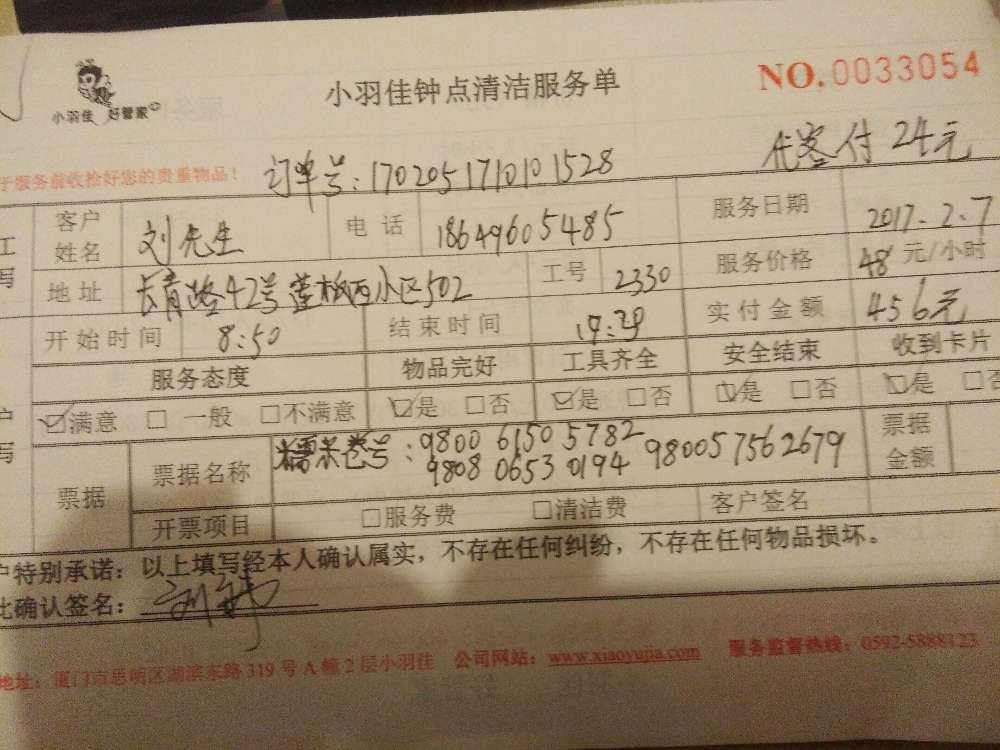 小羽佳 好管家
小羽佳钟点清洁服务单
NO.0033054
于服务前收拾好您的贵重物品！
订单号:170205171010 1528
代客付 24元
工
写
客户姓名
刘先生
电 话
18649605485
服务日期
2017.2.7
地 址
长青路42号莲板西小区502
工号
2330
服务价格
48 元/小时
开始时间
8:50
结束时间
实付金额
456元
服务态度
物品完好
工具齐全
安全结束
收到卡片
☑满意 □ 一般 □不满意
☑是 □否
☑是 □否
☑是 □否
☑是 □否
户
写
票据
票据名称
糯米卷号:9800 6150 5782
9808 0653 0194 980057562679
票据金额
开票项目
□服务费 □清洁费
客户签名
户特别承诺：以上填写经本人确认属实，不存在任何纠纷，不存在任何物品损坏。
此确认签名：
地址：厦门市思明区湖滨东路 319 号 A 幢 2 层小羽佳 公司网站：www.xiaoyujia.com 服务监督热线：0592-5888123